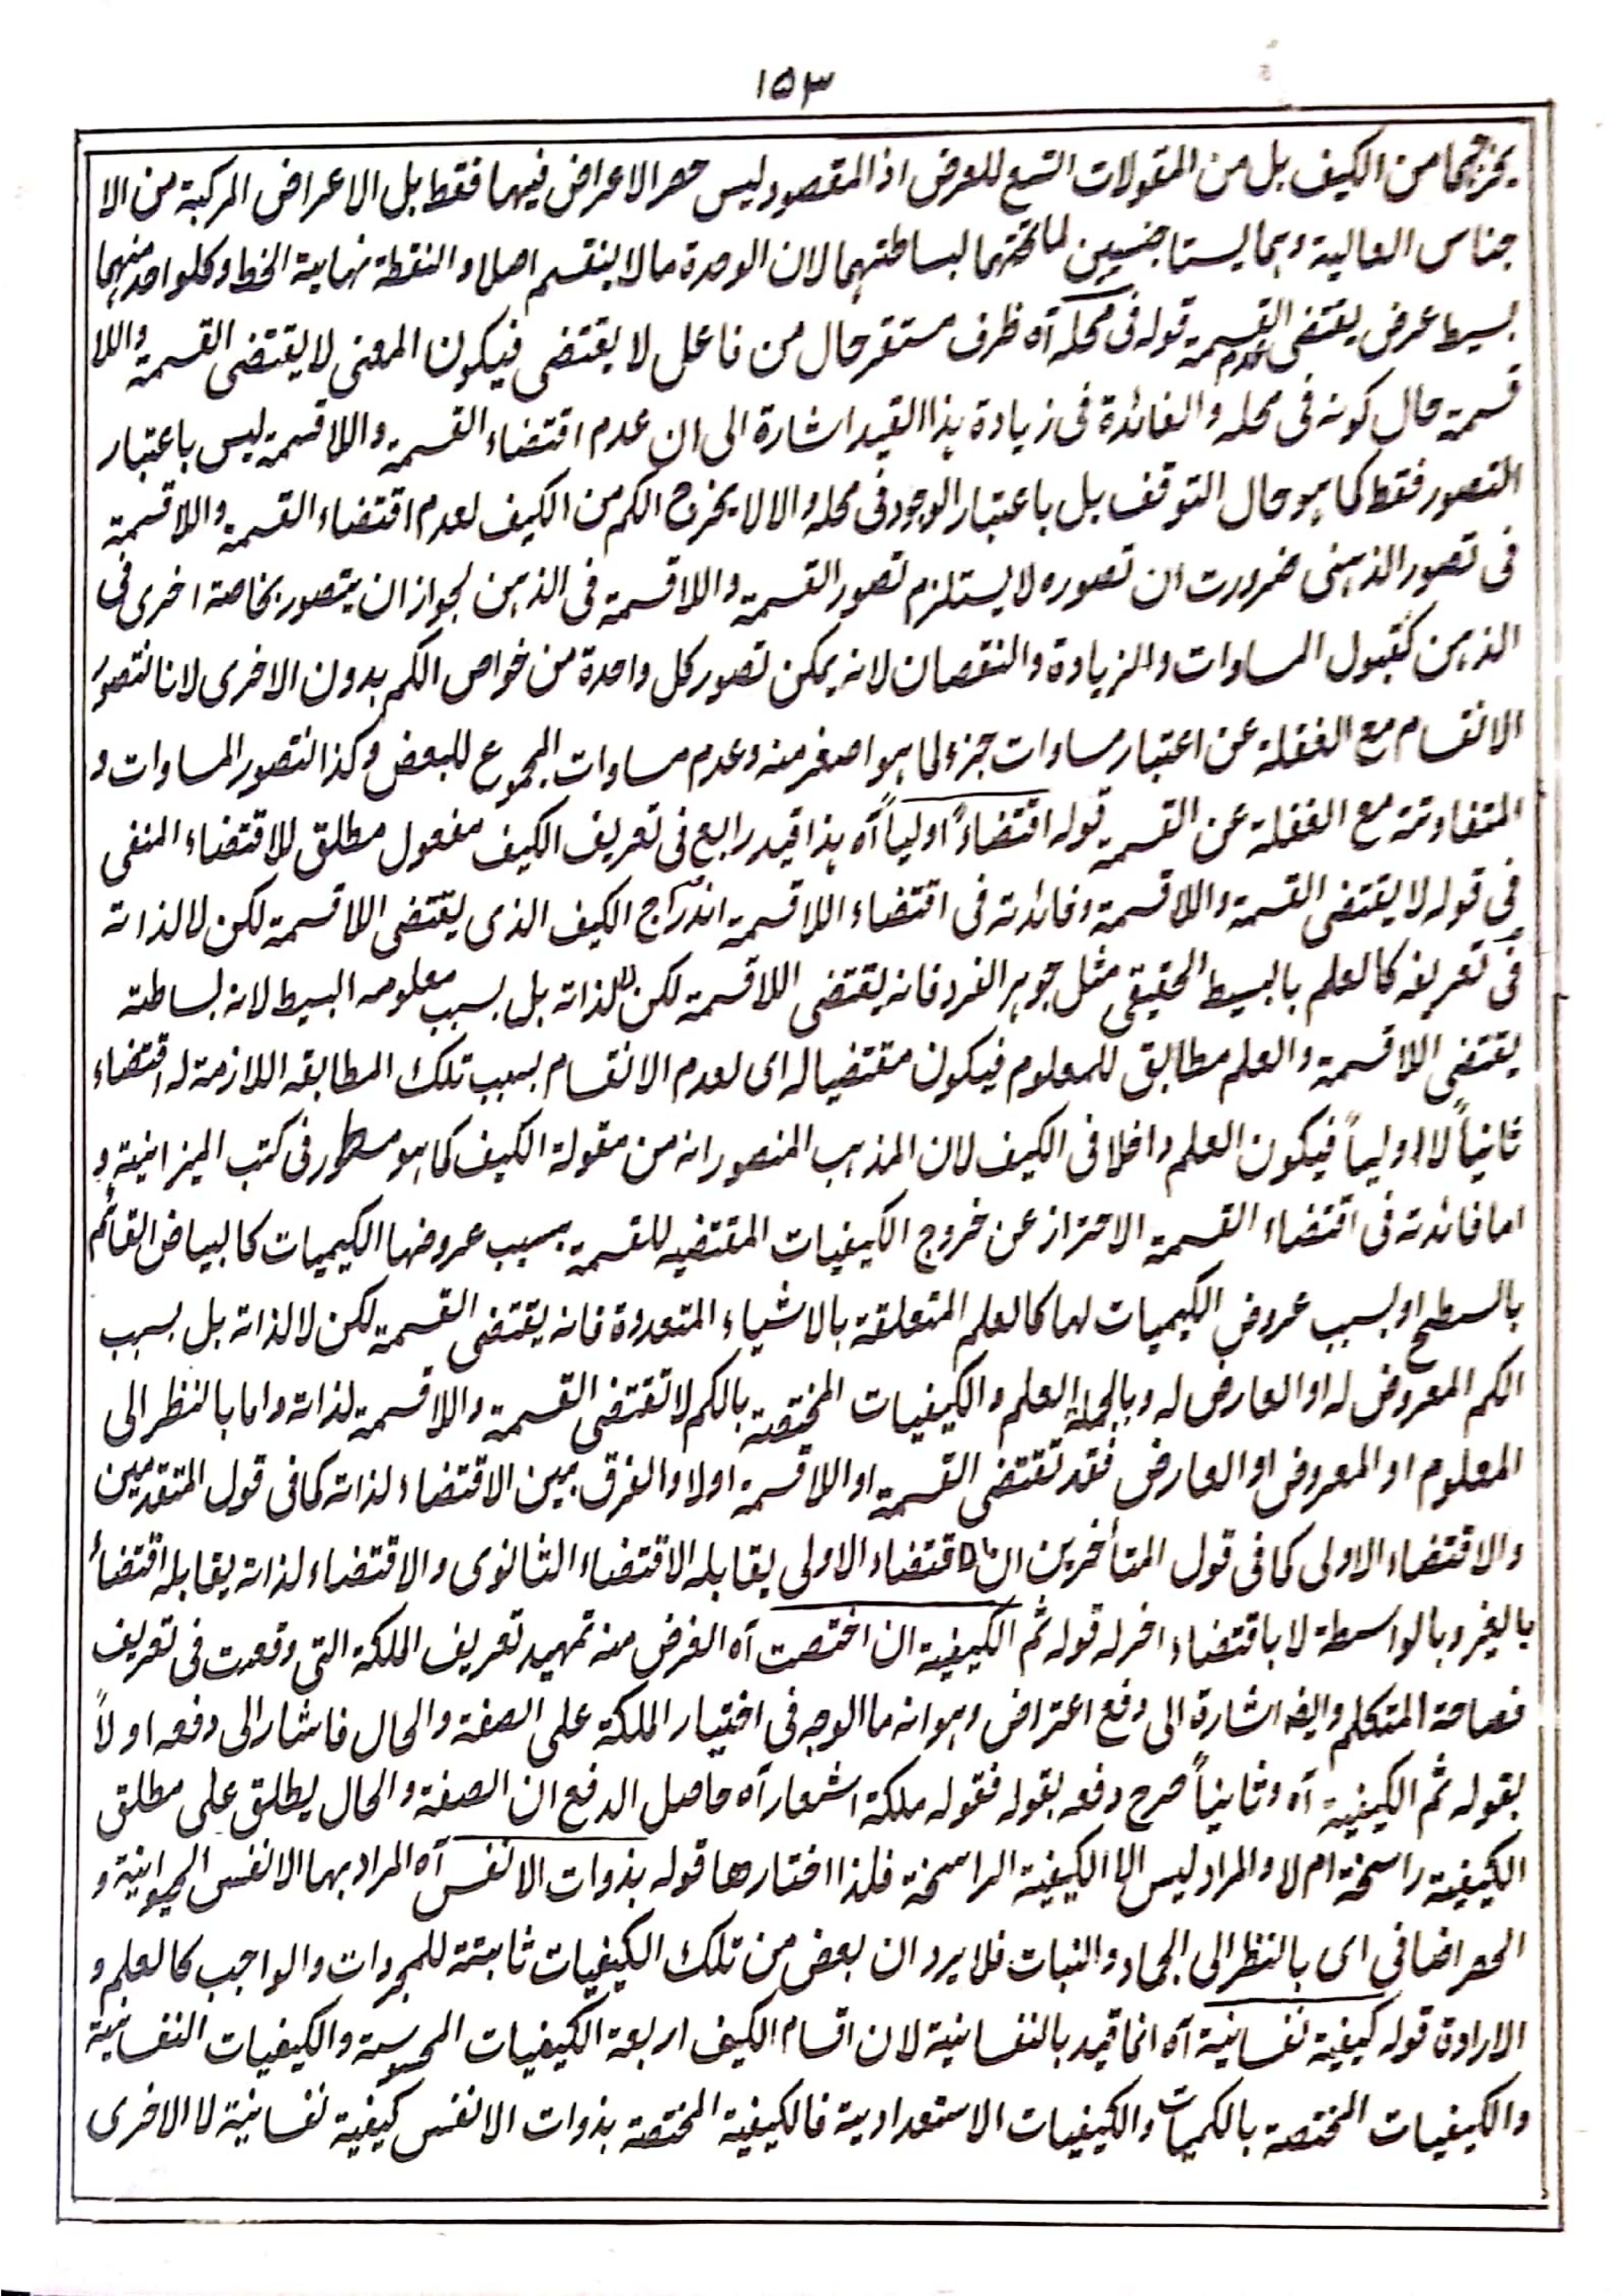 ١٥٣
يخرجهما من الكيف بل من المقولات التسع للعرض اذ المقصود ليس حصر الاعراض فيها فقط بل الاعراض المركبة من الا
جناس العالية وهما ليستا جنسين لما تحتهما لبساطتهما لان الوحدة ما لا ينقسم اصلا و النقطة نهاية الخط و كلواحد منهما
بسيط عرض يقتضى عدم القسمة قوله فى محله آه ظرف مستقر حال من فاعل لا يقتضى فيكون المعنى لا يقتضى القسمة واللا
قسمة حال كونه فى محله و الفائدة فى زيادة هذا القيد اشارة الى ان عدم اقتضاء القسمة و اللا قسمة ليس باعتبار
التصور فقط كما هو حال التوقف بل باعتبار الوجود فى محله و الا لا يخرج الكم من الكيف لعدم اقتضاء القسمة و اللا قسمة
فى تصور الذهنى ضرورت ان تصوره لا يستلزم تصور القسمة و اللا قسمة فى الذهن لجواز ان يتصور بخاصة اخرى فى
الذهن كقبول المساوات و الزيادة و النقصان لانه يمكن تصور كل واحدة من خواص الكم بدون الاخرى لانا نتصور
الانقسام مع الغفلة عن اعتبار مساوات جزء لما هو اصغر منه وعدم مساوات المجموع للبعض و كذا نتصور المساوات و
المتفاوتة مع الغفلة عن القسمة قوله اقتضاءً اولياً آه هذا قيد رابع فى تعريف الكيف مفعول مطلق للاقتضاء المنفى
فى قوله لا يقتضى القسمة و اللا قسمة و فائدته فى اقتضاء اللا قسمة اندراج الكيف الذى يقتضى اللا قسمة لكن لا لذاته
فى تعريفه كالعلم بالبسيط الحقيقى مثل جوهر الفرد فانه يقتضى اللا قسمة لكن لا لذاته بل بسبب معلومه البسيط لانه لبساطته
يقتضى اللا قسمة و العلم مطابق للمعلوم فيكون مقتضيا له اى لعدم الانقسام بسبب تلك المطابقه اللازمة له اقتضاء
ثانياً لا اولياً فيكون العلم داخلا فى الكيف لان المذهب المنصور انه من مقولة الكيف كما هو مسطور فى كتب الميزانية و
اما فائدته فى اقتضاء القسمة الاحتراز عن خروج الكيفيات المقتضيه للقسمة بسبب عروضها الكيميات كالبياض القائم
بالسطح او بسبب عروض الكيميات لها كالعلم المتعلقة بالاشياء المتعددة فانه يقتضى القسمة لكن لا لذاته بل بسبب
الكم المعروض له او العارض له و بالجملة العلم و الكيفيات المختصة بالكم لا تقتضى القسمة و اللا قسمة لذاته و اما بالنظر الى
المعلوم او المعروض او العارض فقد تقتضى القسمة او اللا قسمة اولا و الفرق بين الاقتضاء لذاته كما فى قول المتقدمين
و الاقتضاء الاولى كما فى قول المتأخرين ان الاقتضاء الاولى يقابله الاقتضاء الثانوى و الاقتضاء لذاته يقابله اقتضاء
بالغير و بالواسطة لا باقتضاء اخر له قوله ثم الكيفية ان اختصت آه الغرض منه تمهيد تعريف الملكة التى وقعت فى تعريف
فصاحة المتكلم وايضه اشارة الى دفع اعتراض و هو انه ما الوجه فى اختيار الملكة على الصفة و الحال فاشار الى دفعه اولاً
بقوله ثم الكيفية آه و ثانياً صرح دفعه بقوله فقوله ملكة اشعار آه حاصل الدفع ان الصفة و الحال يطلق على مطلق
الكيفية راسخة ام لا و المراد ليس الا الكيفية الراسخة فلذا اختارها قوله بذوات الانفس آه المراد بها الانفس الحيوانية و
الحصر اضافى اى بالنظر الى الجماد و النبات فلا يرد ان بعض من تلك الكيفيات ثابتة للمجردات و الواجب كالعلم و
الارادة قوله كيفية نفسانية آه انما قيد بالنفسانية لان اقسام الكيف اربعة الكيفيات المحسوسة و الكيفيات النفسانية
و الكيفيات المختصة بالكميات و الكيفيات الاستعدادية فالكيفية المختصة بذوات الانفس كيفية نفسانية لا الاخرى